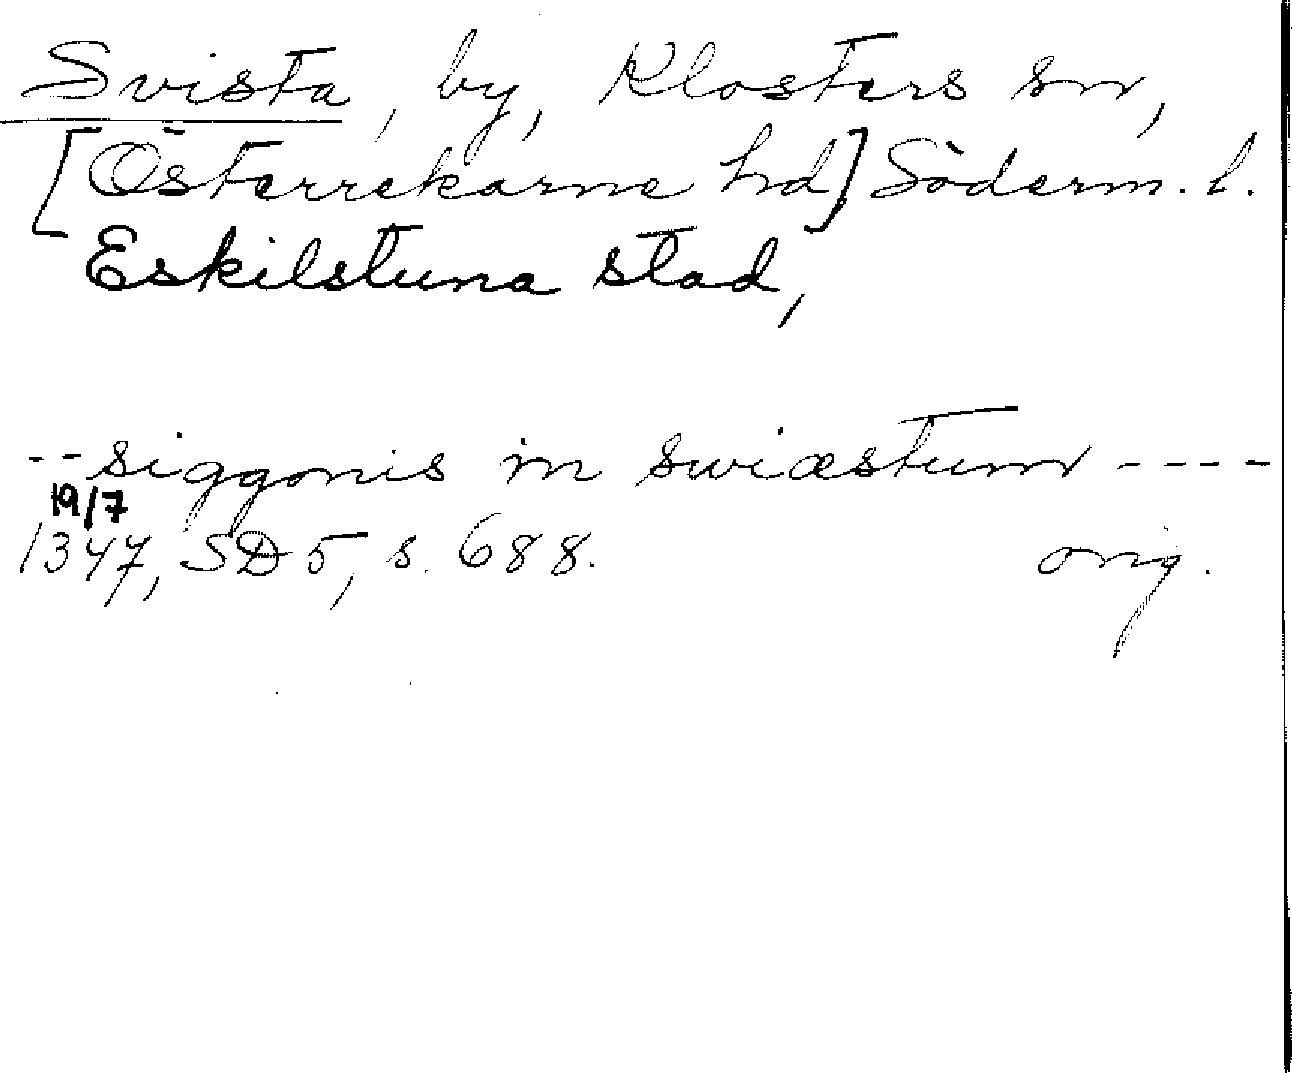 Svista, by, Klosters sn,
[Österrekarne hd] Söderm. l.
Eskilstuna stad,
-- siggonis in swiæstum ----
19/7
1347, SD 5, s. 688. orig.